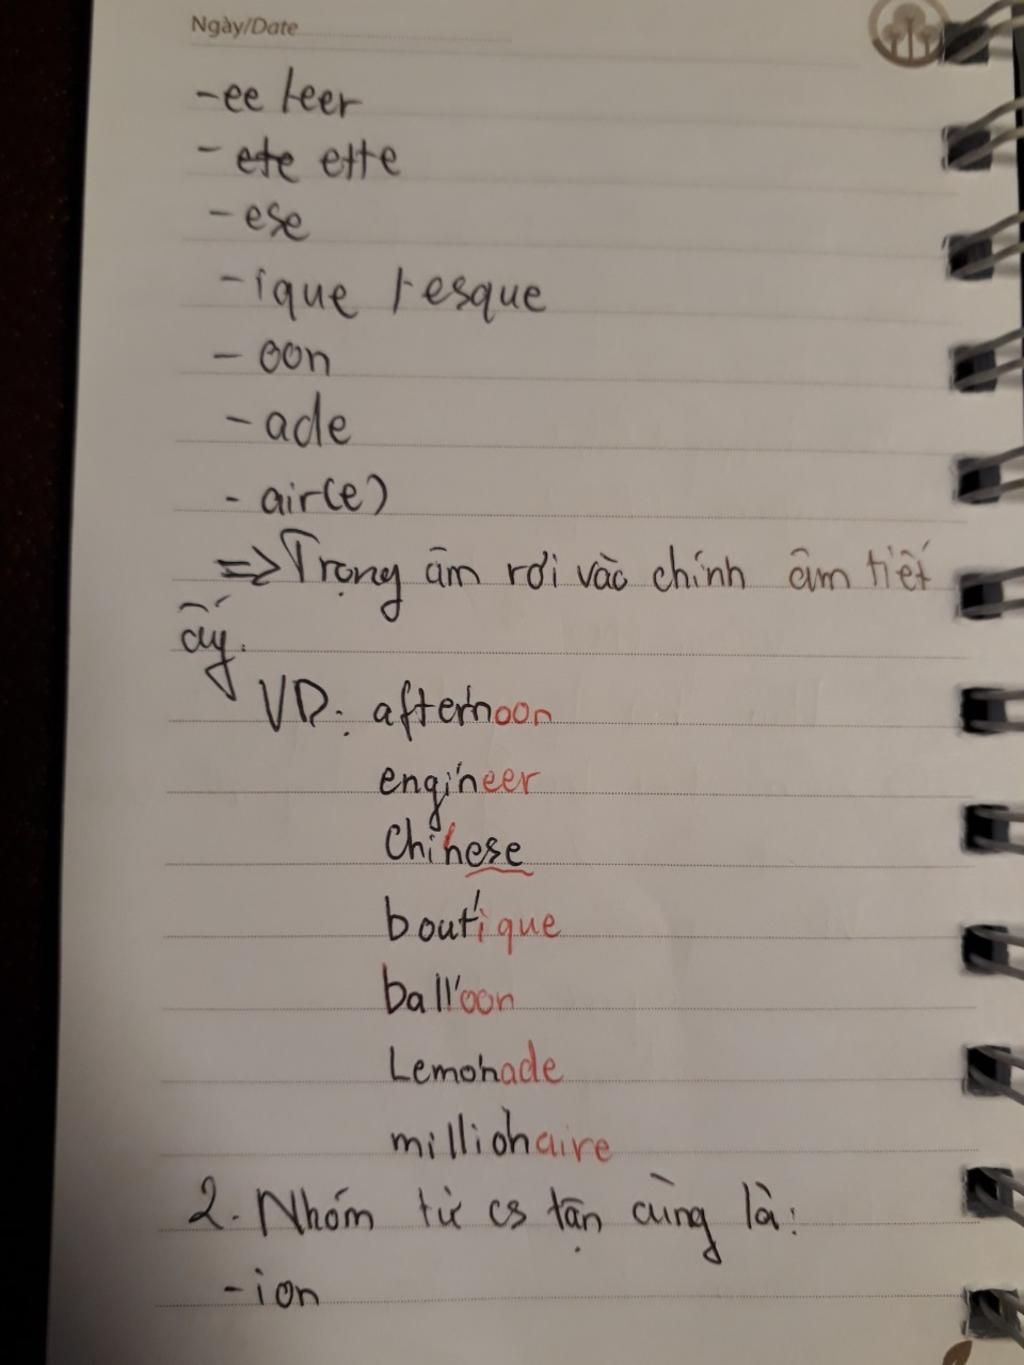 Ngày/Date
-ee /-eer
- ete ette
- ese
- ique /-esque
- oon
- ade
- air(e)
=> Trọng âm rơi vào chính âm tiết
ấy.
VD: after'noon
engin'eer
Chi'nese
bout'ique
ball'oon
Lemonade
millionaire
2. Nhóm từ có tận cùng là:
- ion